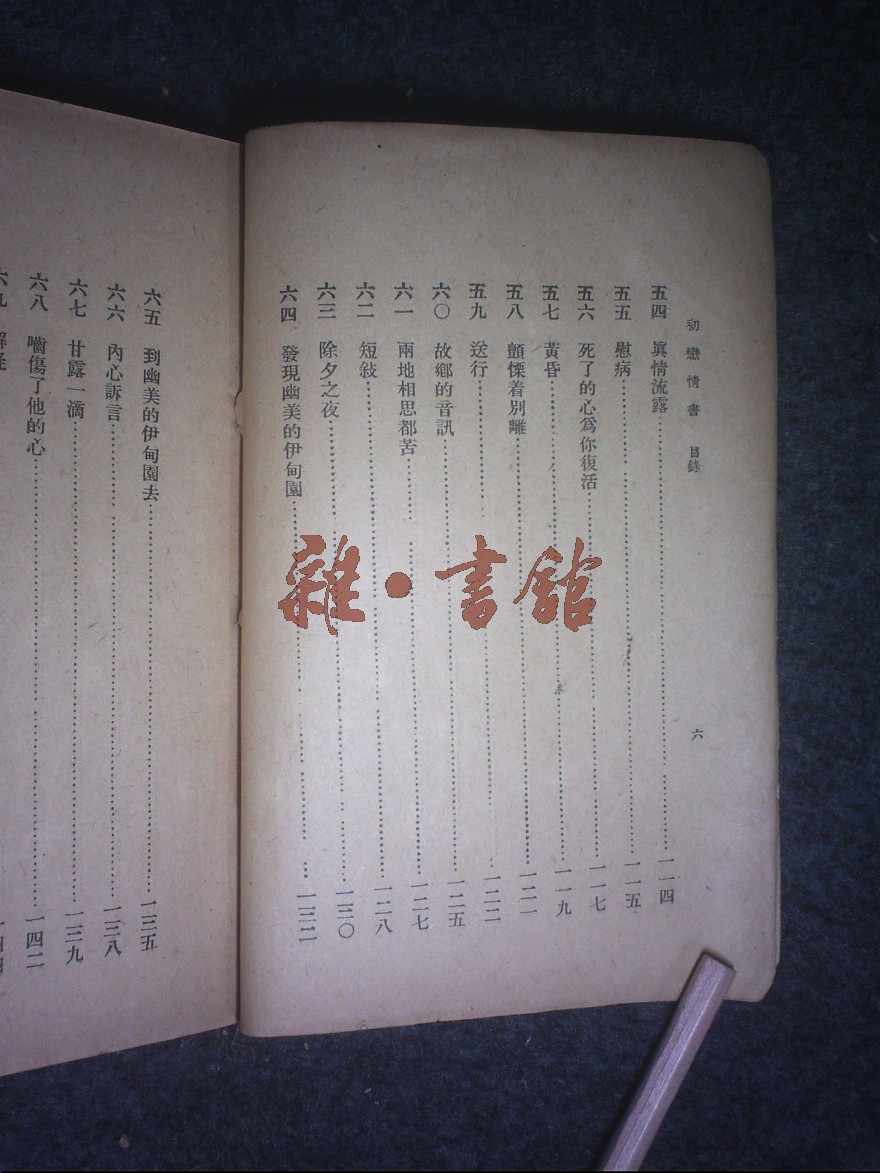 初戀情書 目錄 六
五四 眞情流露 一一四
五五 慰病 一一五
五六 死了的心爲你復活 一一七
五七 黃昏 一一九
五八 顫慄着別離 一二一
五九 送行 一二三
六〇 故鄉的音訊 一二五
六一 兩地相思都苦 一二七
六二 短敍 一二八
六三 除夕之夜 一三〇
六四 發現幽美的伊甸園 一三二
六五 到幽美的伊甸園去 一三五
六六 內心訴言 一三八
六七 甘露一滴 一三九
六八 嚙傷了他的心 一四二
六九
雜·書館